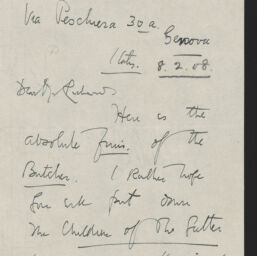 Via Peschiera 30 a.
Genova
Italy. 8.2.08.
Dear Mr Richards
Here is the
absolute finis. of the
Butcher. I rather hope
you will put down
The Children of the Gutter